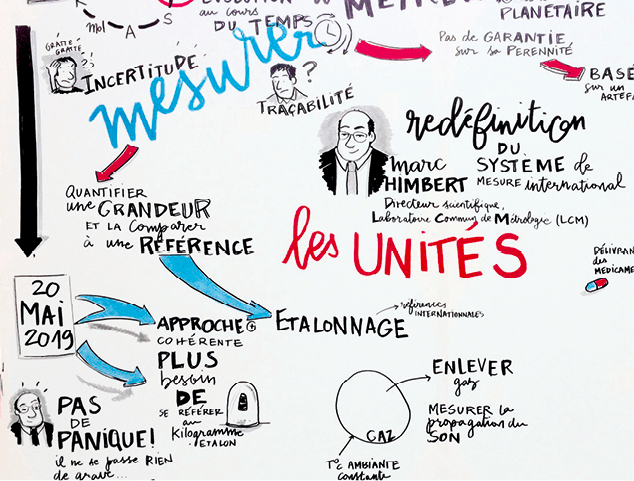 ÉVOLUTION
au cours
DU TEMPS
PLANÉTAIRE
Mol A S
Pas de GARANTIE
sur sa PERENNITÉ
BASÉ
sur un
ARTÉFA
GRATTE
GRATTE
INCERTITUDE
mesurer
?
TRAÇABILITÉ
redéfinition
DU
SYSTÈME de
MESURE international
marc
HIMBERT
Directeur scientifique,
Laboratoire Commun de Métrologie (LCM)
QUANTIFIER
une GRANDEUR
ET LA Comparer
à une RÉFÉRENCE
les UNITÉS
DÉLIVRAN
des
MÉDICAME
20
MAI
2019
APPROCHE +
COHÉRENTE
PLUS
besoin
DE
SE RÉFÉRER
au
Kilogramme
ETALON
ETALONNAGE
références
INTERNATIONALES
ENLEVER
gaz
MESURER la
propagation du
SON
GAZ
T°C AMBIANTE
constante
PAS
DE
PANIQUE!
il ne se passe RIEN
de grave...